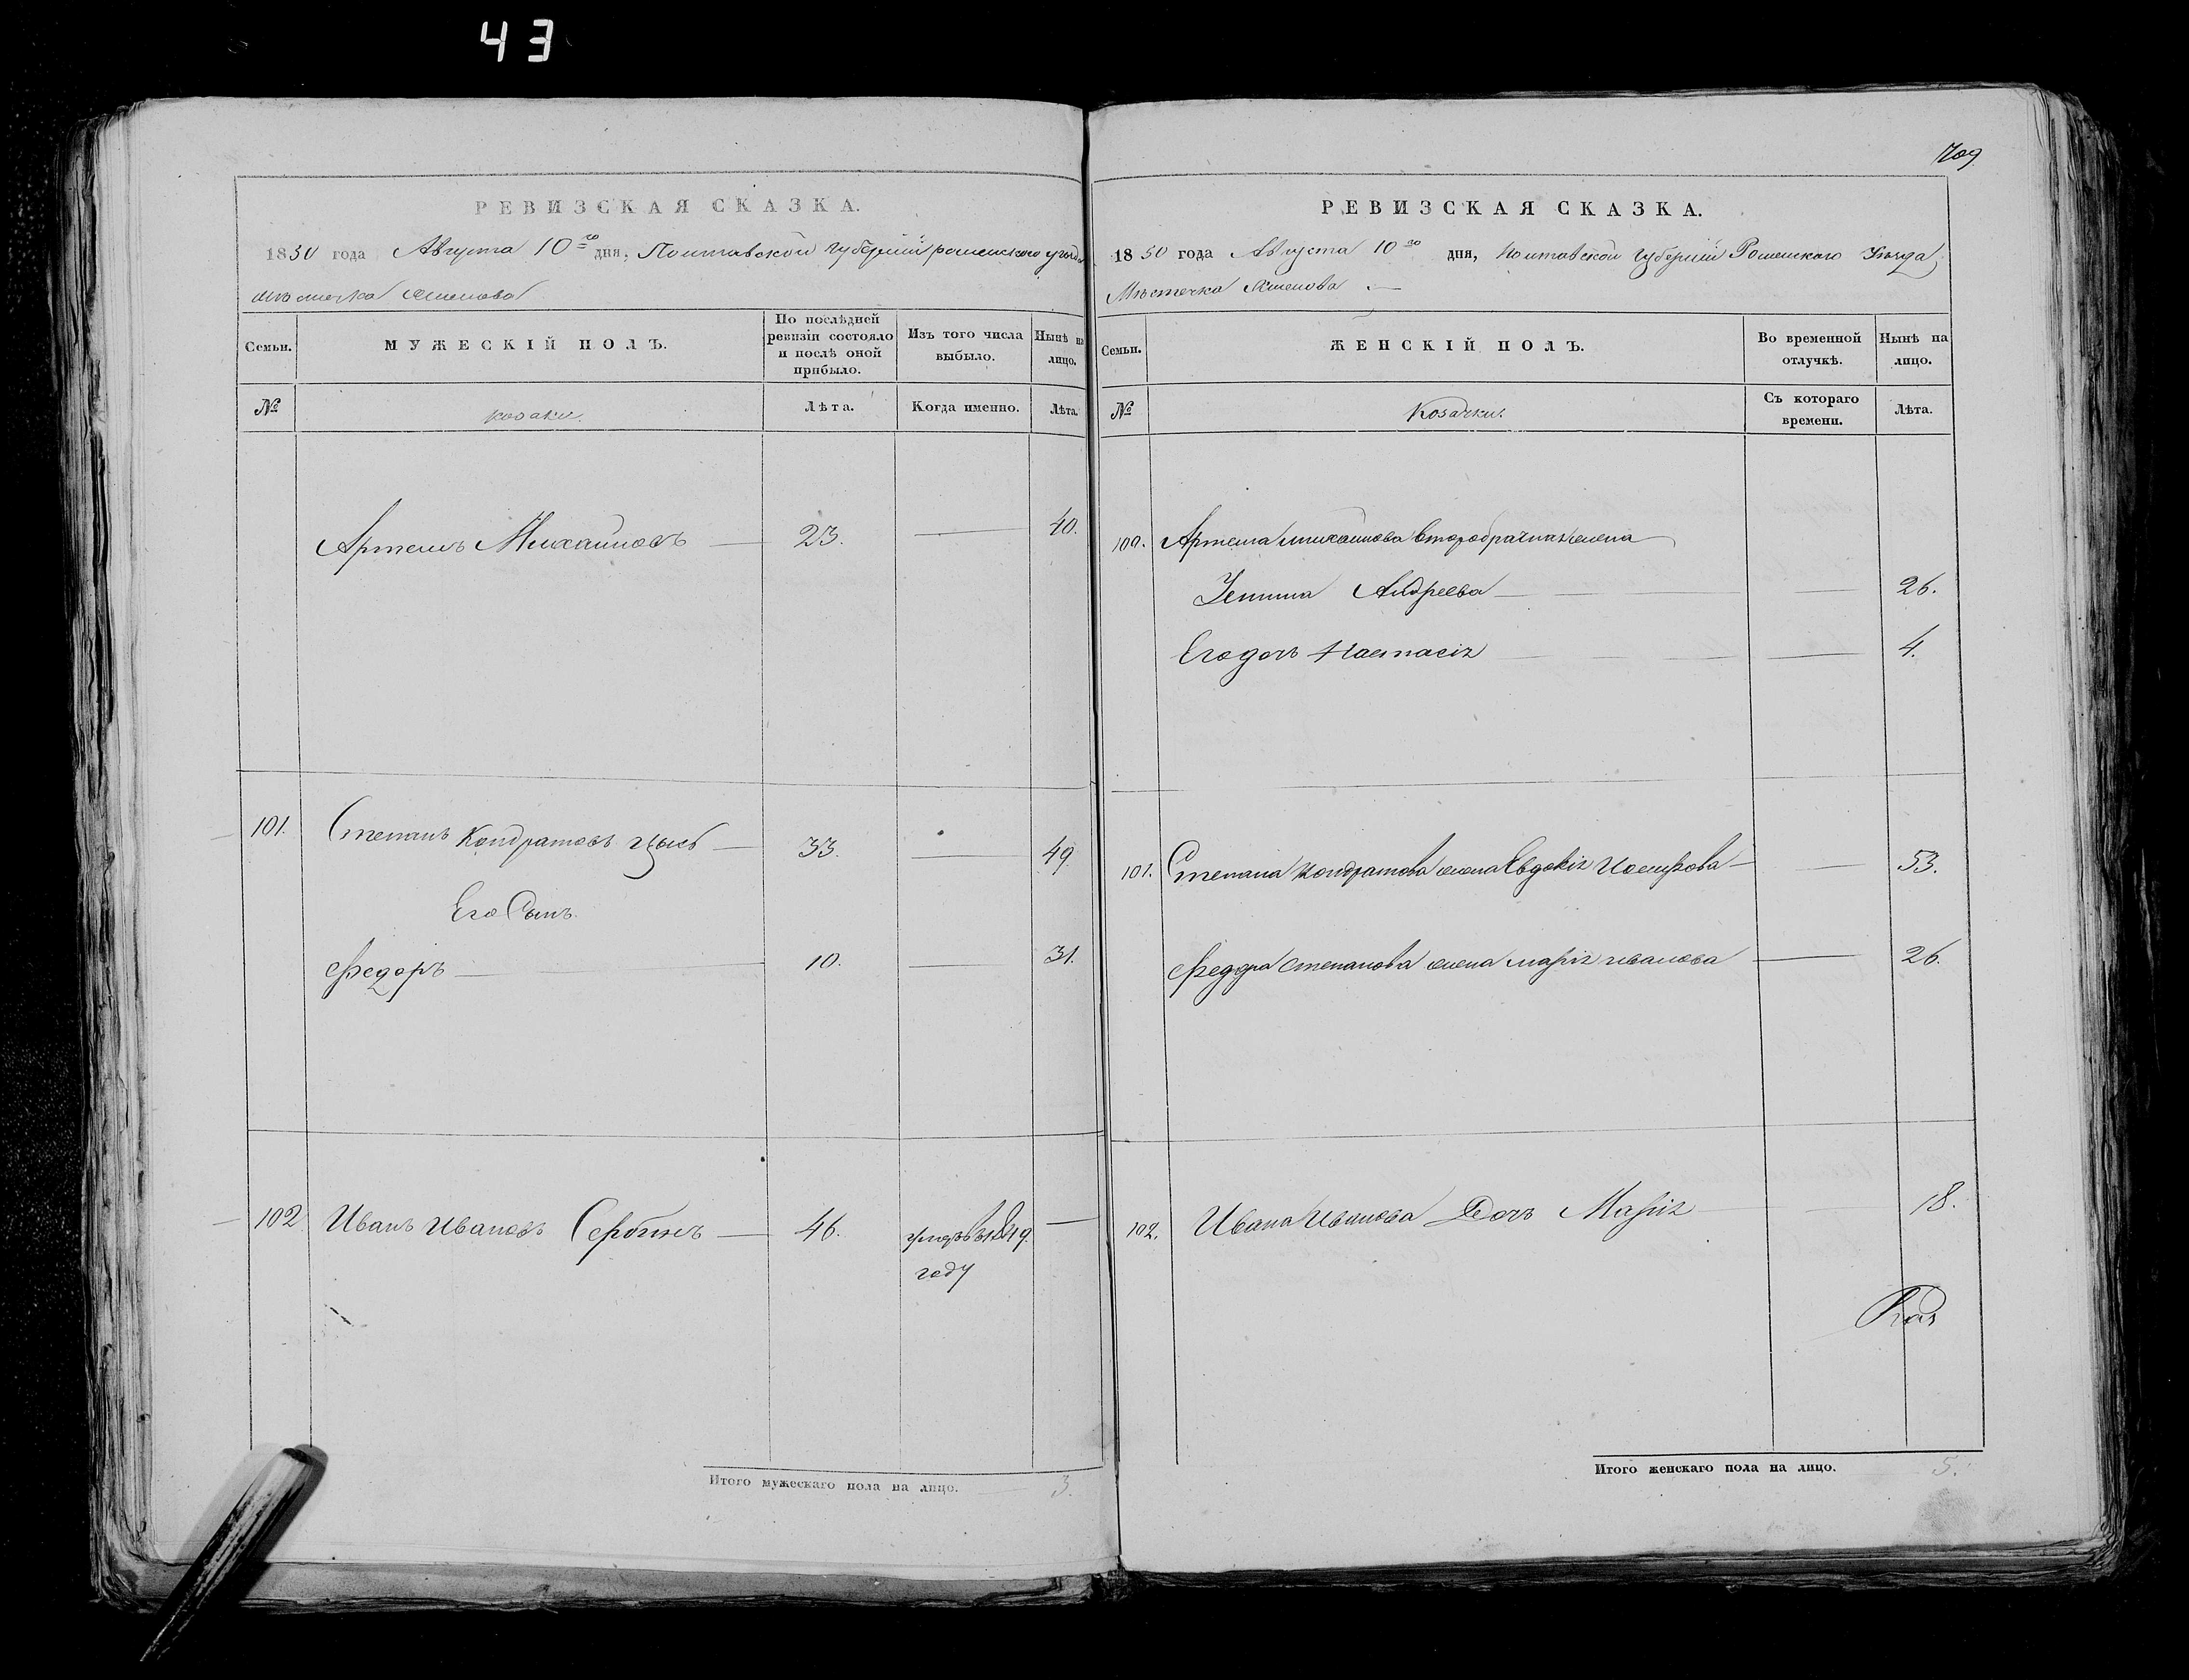 43
РЕВИЗСКАЯ СКАЗКА.
1850 года Августа 10го дня, Полтавской губернии роменского уезда
местечка
Семьи.
МУЖЕСКІЙ ПОЛЪ.
По послѣдней ревизіи состояло и послѣ оной прибыло.
Изъ того числа выбыло.
Нынѣ на лицо.
№
козаки.
Лѣта.
Когда именно.
Лѣта.
Артемъ Михайловъ 23. 40.
101. Степанъ Кондратовъ 33. 49.
Его Сынъ
Федоръ 10. 31.
102 Иванъ Ивановъ Сербинъ 46. умеръ въ 1849.
году
Итого мужескаго пола на лицо. 3.
709
РЕВИЗСКАЯ СКАЗКА.
1850 года Августа 10го дня, Полтавской губернии Роменского Уезда
Местечка
Семьи.
ЖЕНСКІЙ ПОЛЪ.
Во временной отлучкѣ.
Нынѣ на лицо.
№
Козачки.
Съ котораго времени.
Лѣта.
100. Артема михайлова второбрачна жена
Андреева 26.
Его дочь Настасія 4.
101. Степана Кондратова жена Евдокія 53.
Федора степанова жена марія иванова 26.
102. Ивана Иванова Дочь Марія 18.
Итого женскаго пола на лицо. 5.